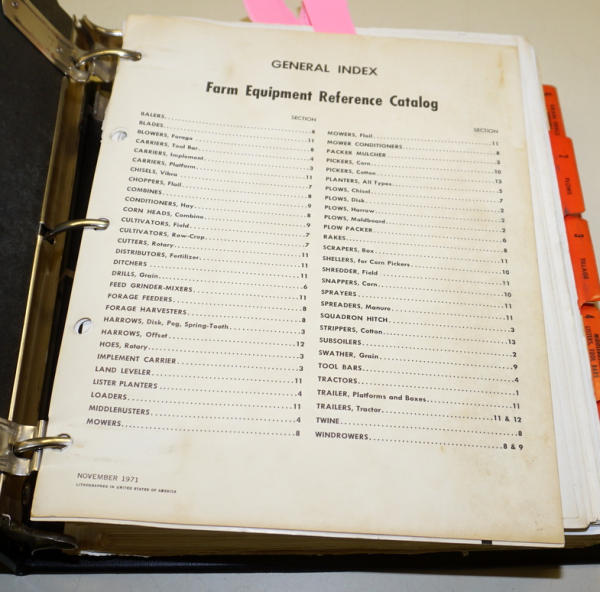 GENERAL INDEX
Farm Equipment Reference Catalog
SECTION
BALERS 8
BLADES 11
BLOWERS, Forage 8
CARRIERS, Tool Bar 4
CARRIERS, Implement 3
CARRIERS, Platform 11
CHISELS, Vibra 7
CHOPPERS, Flail 8
COMBINES 9
CONDITIONERS, Hay 8
CORN HEADS, Combine 9
CULTIVATORS, Field 7
CULTIVATORS, Row-Crop 7
CUTTERS, Rotary 11
DISTRIBUTORS, Fertilizer 11
DITCHERS 11
DRILLS, Grain 6
FEED GRINDER-MIXERS 11
FORAGE FEEDERS 8
FORAGE HARVESTERS 8
HARROWS, Disk, Peg, Spring-Tooth 3
HARROWS, Offset 12
HOES, Rotary 3
IMPLEMENT CARRIER 3
LAND LEVELER 11
LISTER PLANTERS 4
LOADERS 11
MIDDLEBUSTERS 4
MOWERS 8
SECTION
MOWERS, Flail 11
MOWER CONDITIONERS 8
PACKER MULCHER 3
PICKERS, Corn 10
PICKERS, Cotton 13
PLANTERS, All Types 5
PLOWS, Chisel 7
PLOWS, Disk 2
PLOWS, Harrow 2
PLOWS, Moldboard 2
PLOW PACKER 6
RAKES 8
SCRAPERS, Box 11
SHELLERS, for Corn Pickers 10
SHREDDER, Field 11
SNAPPERS, Corn 10
SPRAYERS 11
SPREADERS, Manure 11
SQUADRON HITCH 3
STRIPPERS, Cotton 13
SUBSOILERS 2
SWATHER, Grain 9
TOOL BARS 4
TRACTORS 1
TRAILER, Platforms and Boxes 11
TRAILERS, Tractor 11 & 12
TWINE 8
WINDROWERS 8 & 9
NOVEMBER 1971
LITHOGRAPHED IN UNITED STATES OF AMERICA
1
2
PLOWS
3
TILLAGE
4